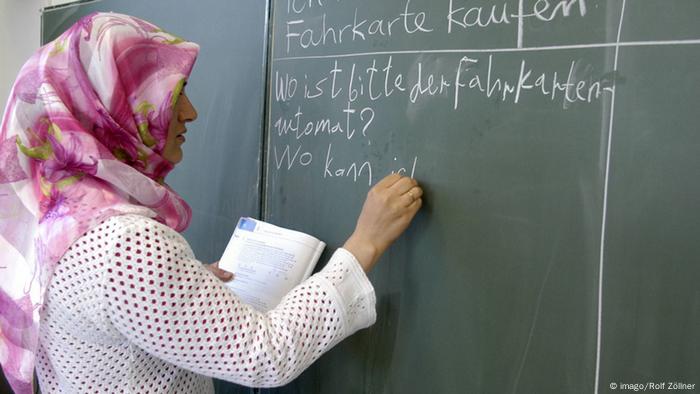 ich
Fahrkarte kaufen.
Wo ist bitte der Fahrkarten-
automat?
Wo kann ich
© imago/Rolf Zöllner